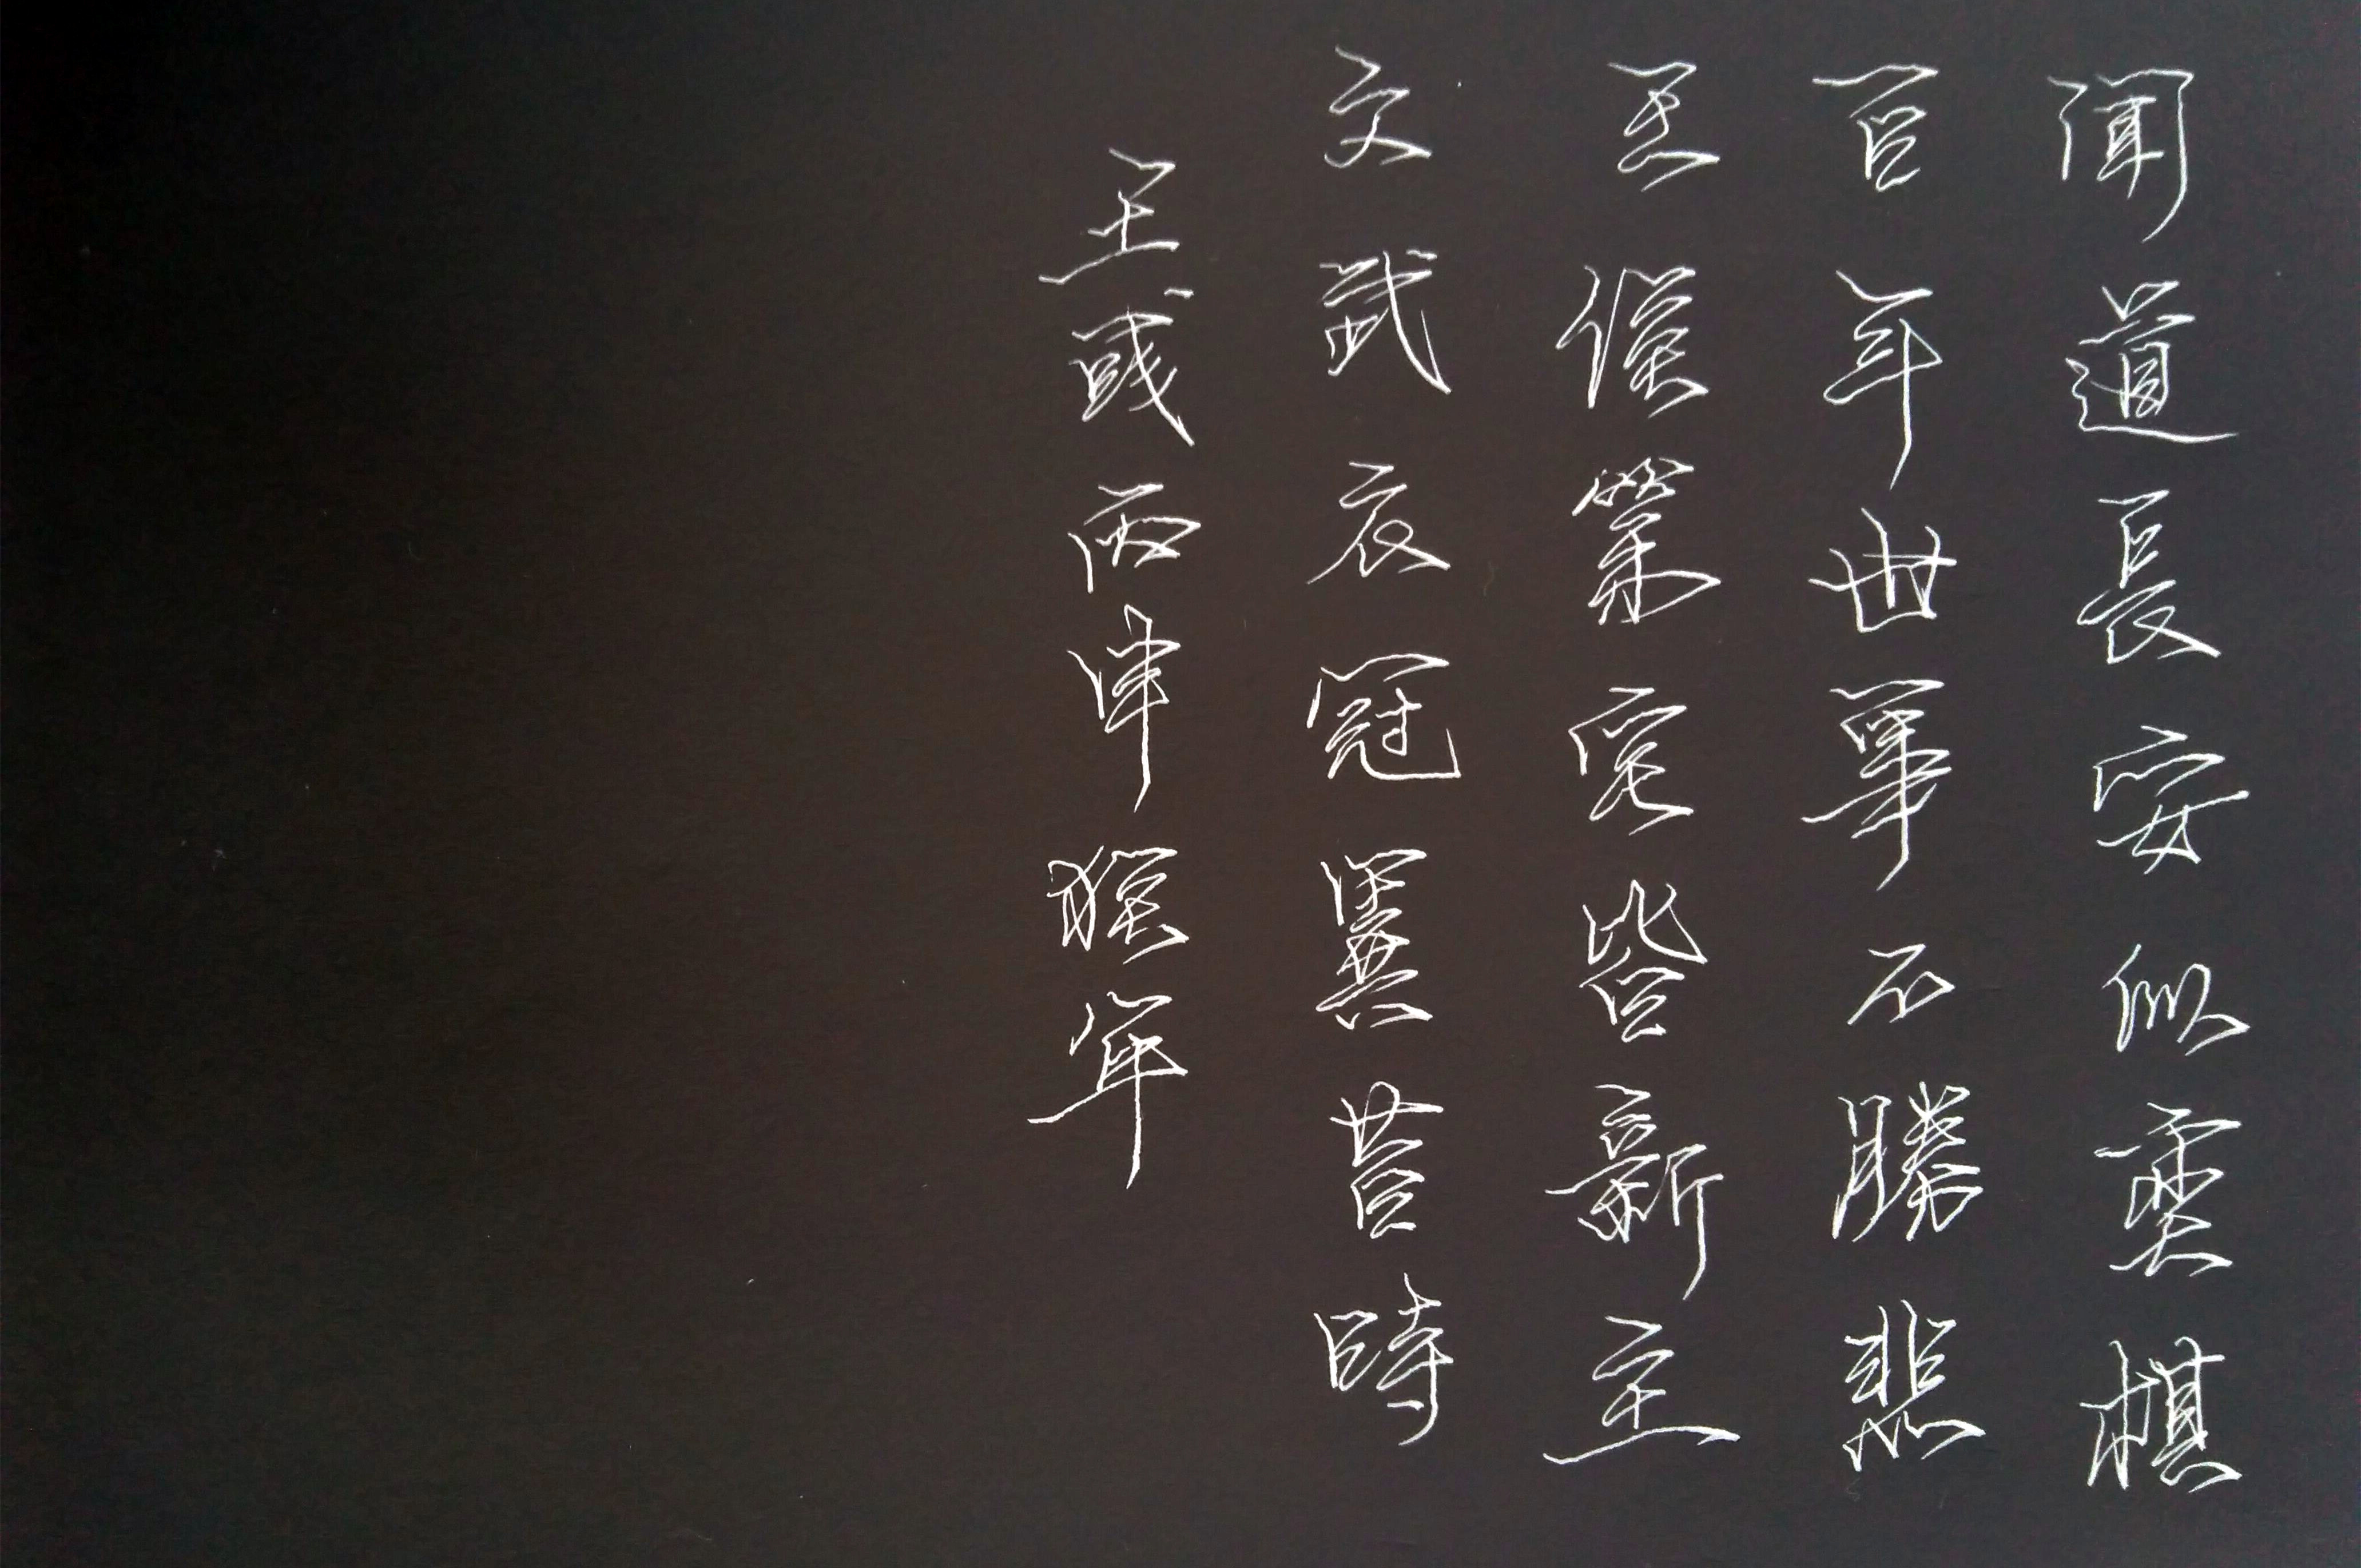 聞道長安似奕棋
百年世事不勝悲
王侯第宅皆新主
文武衣冠異昔時
王彧丙申猴年